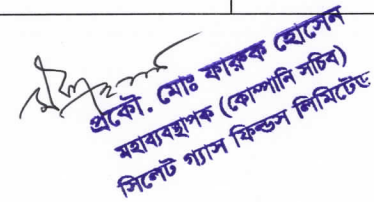 প্রকৌ. মোঃ ফারুক হোসেন
মহাব্যবস্থাপক (কোম্পানি সচিব)
সিলেট গ্যাস ফিল্ডস লিমিটেড